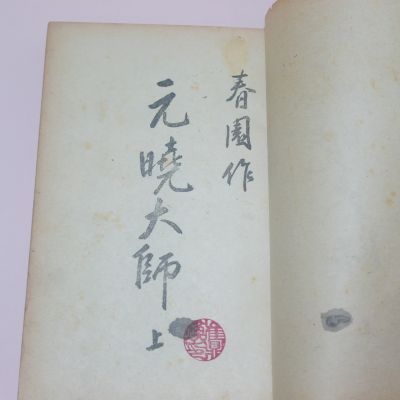 春園作
元曉大師
上